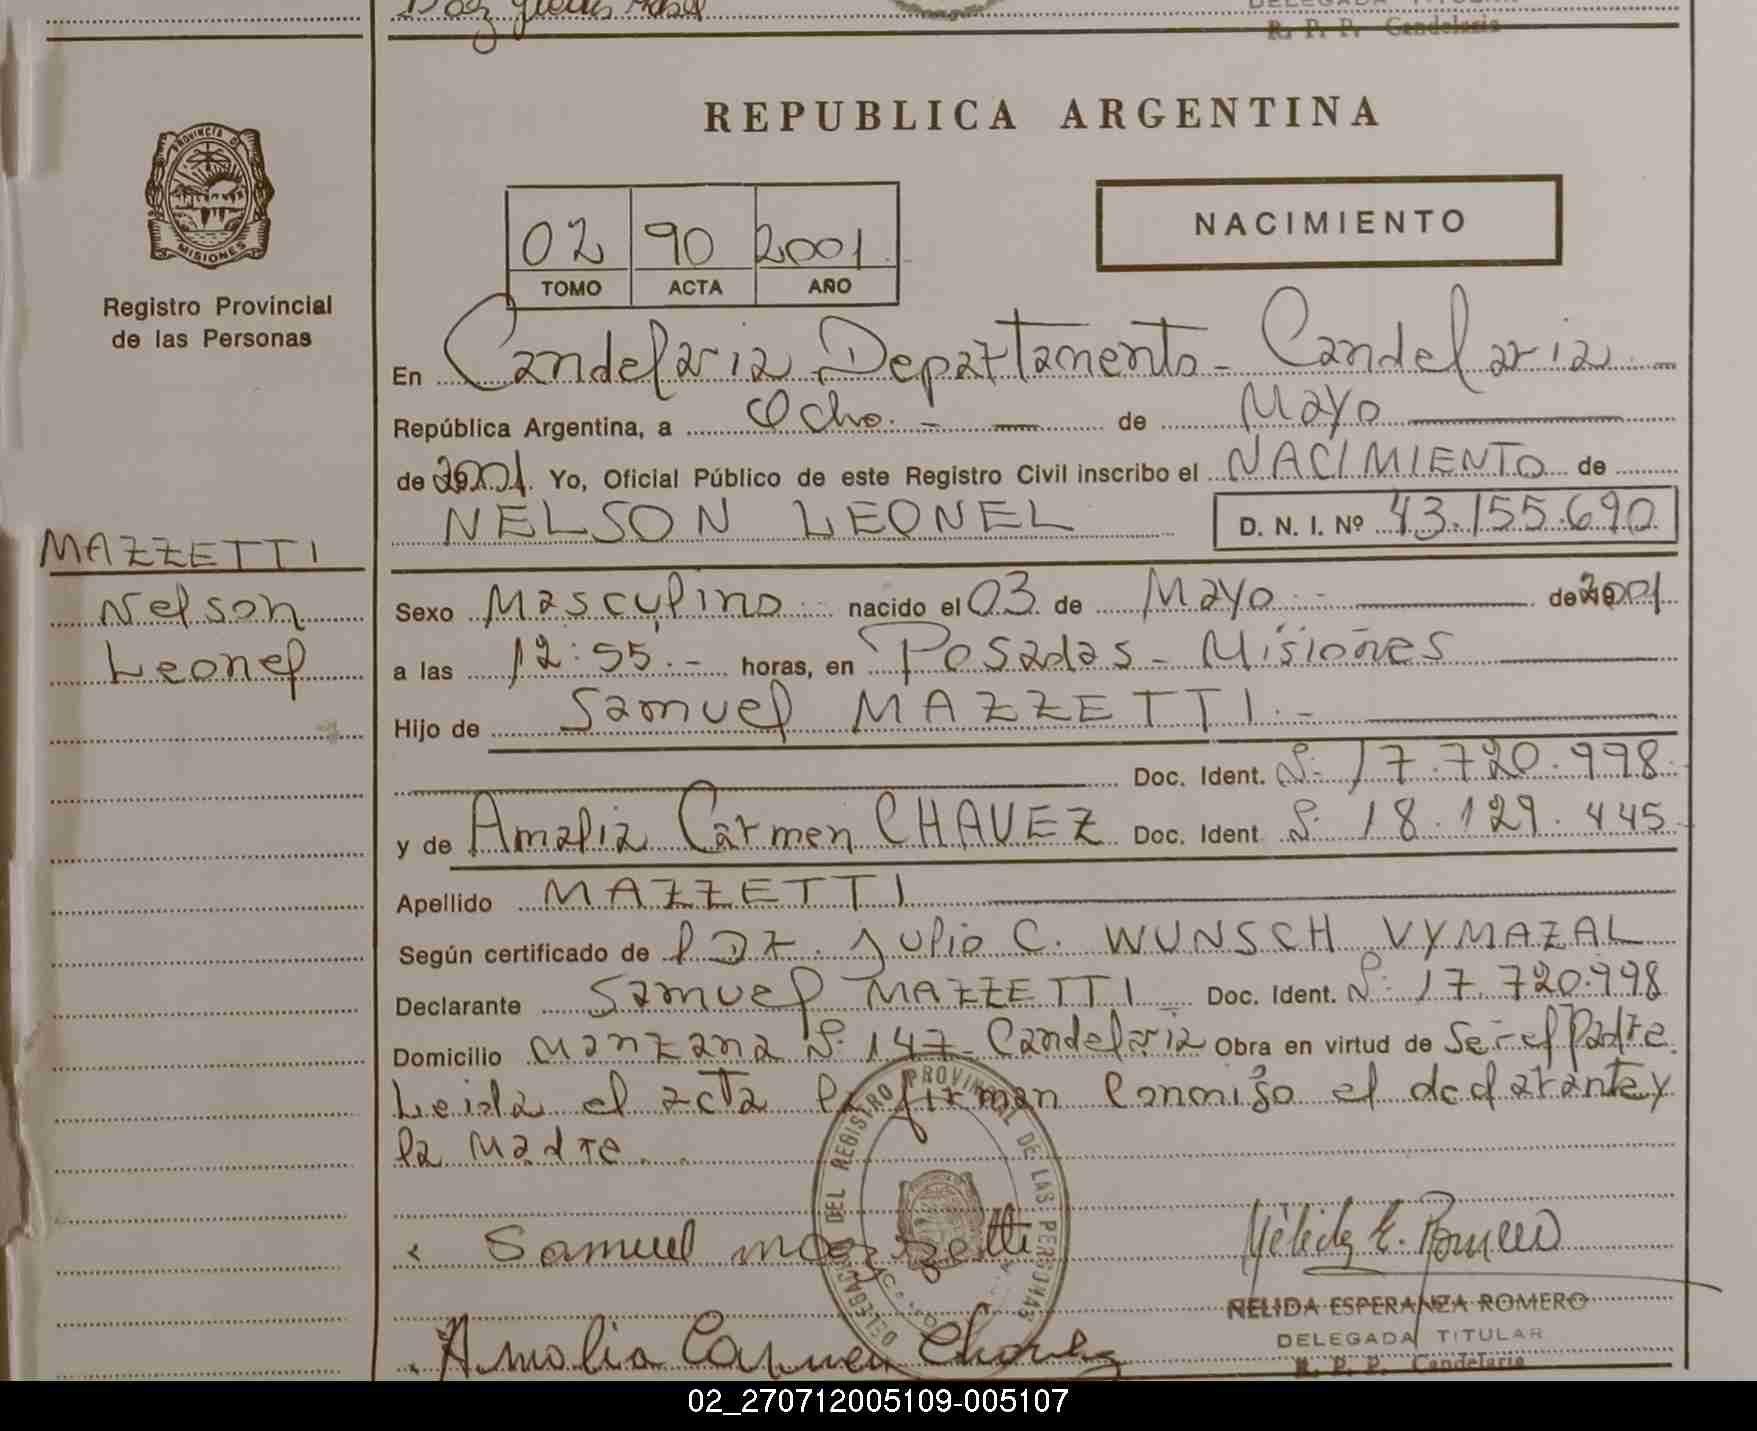 R. P. P. Candelaria
REPUBLICA ARGENTINA
PROVINCIA DE
MISIONES
Registro Provincial
de las Personas
02 90 2001
TOMO ACTA AÑO
NACIMIENTO
En Candelaria Departamento - Candelaria
República Argentina, a Ocho.- de Mayo
de 2001. Yo, Oficial Público de este Registro Civil inscribo el NACIMIENTO de
NELSON LEONEL D. N. I. Nº 43.155.690
MAZZETTI
Nelson
Leonel
Sexo Masculino nacido el 03 de Mayo.- de 2001
a las 12:55.- horas, en Posadas - Misiones
Hijo de Samuel MAZZETTI.-
Doc. Ident. Nº 17.720.998
y de Amalia Carmen CHAVEZ Doc. Ident Nº 18.129.445
Apellido MAZZETTI
Según certificado de l Dr. Julio C. WUNSCH VYMAZAL
Declarante Samuel MAZZETTI Doc. Ident. Nº 17.720.998
Domicilio Manzana Nº 147 - Candelaria Obra en virtud de Ser el Padre.
Leida el acta la firman conmigo el declarante y
la Madre.
DELEGACION DEL REGISTRO PROVINCIAL DE LAS PERSONAS
Samuel Mazzetti
Nélida E. Romero
NELIDA ESPERANZA ROMERO
DELEGADA TITULAR
R. P. P. Candelaria
Amalia Carmen Chavez
02_270712005109-005107